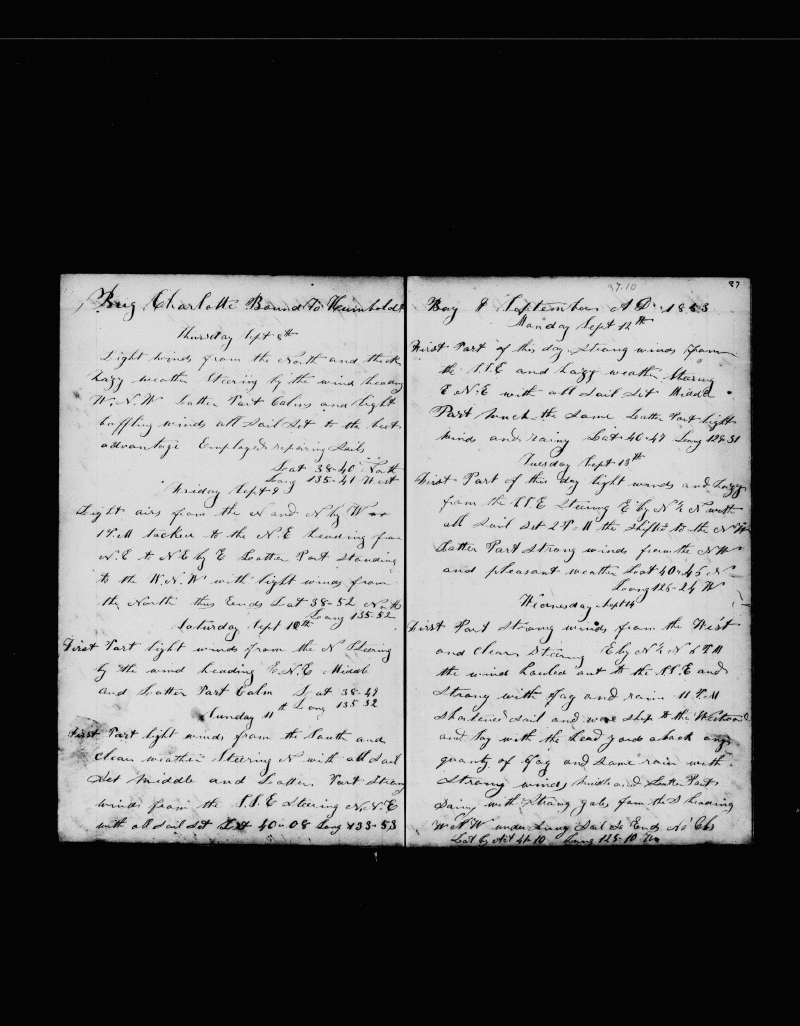 Brig Charlotte Bound To Humboldt
Thursday Sept 8th
Light winds from the North and thick
Hazy weather Steering by the wind heading
W.N.W Latter Part Calms and light
baffling winds all Sail Set to the best
advantage Employed repairing Sails
Lat 38-40 North
Long 135-41 West
Friday Sept 9
Light airs from the N and N by W
1 P.M tacked to the N.E heading from
N.E to N.E by E Latter Part Standing
to the W.N.W with light winds from
the North thus Ends Lat 38-52 North
Long 135-52
Saturday Sept 10th
First Part light winds from the N Steering
by the wind heading E.N.E Middle
and Latter Part Calm Lat 38-49
Long 135 32
Sunday 11th
First Part light winds from the South and
Clear weather Steering N with all Sail
Set Middle and Latter Part Strong
winds from the S.S.E Steering N.N.E
with all Sail Set Lat 40-08 Long 133-53
27.10
27
Bay September A D 1853
Monday Sept 12th
First Part of this day Strong winds from
the S.S.E and hazy weather Steering
E N.E with all Sail Set Middle
Part much the Same Latter Part light
winds and rainy Lat 40-47 Long 128-31
Tuesday Sept 13th
First Part of this day light winds and hazy
from the S.S.E Steering E by N ½ N with
all Sail Set 2 P.M the Shifted to the N W
Latter Part Strong winds from the N W
and pleasant weather Lat 40-45 N
Long 126-24 W
Wednesday Sept 14
First Part Strong winds from the West
and Clear Steering E by N ½ N 6 P.M
the wind hauled out to the S.S.E and
Strong with fog and rain 11 P.M
Shortened Sail and wore Ship to the Westward
and lay with the head yards aback
quanty of fog and Some rain with
Strong winds Middle and Latter Parts
Same with Strong gale from the S heading
W N W under Sail So Ends No Obs
Lat by Act 41-10 Long 125-10